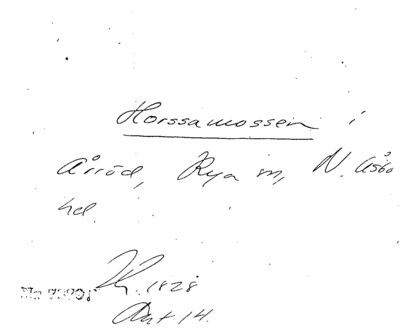 Horssamossen i
Årröd, Rya sn, N. Åsbo
hd.
1828
Akt 14.